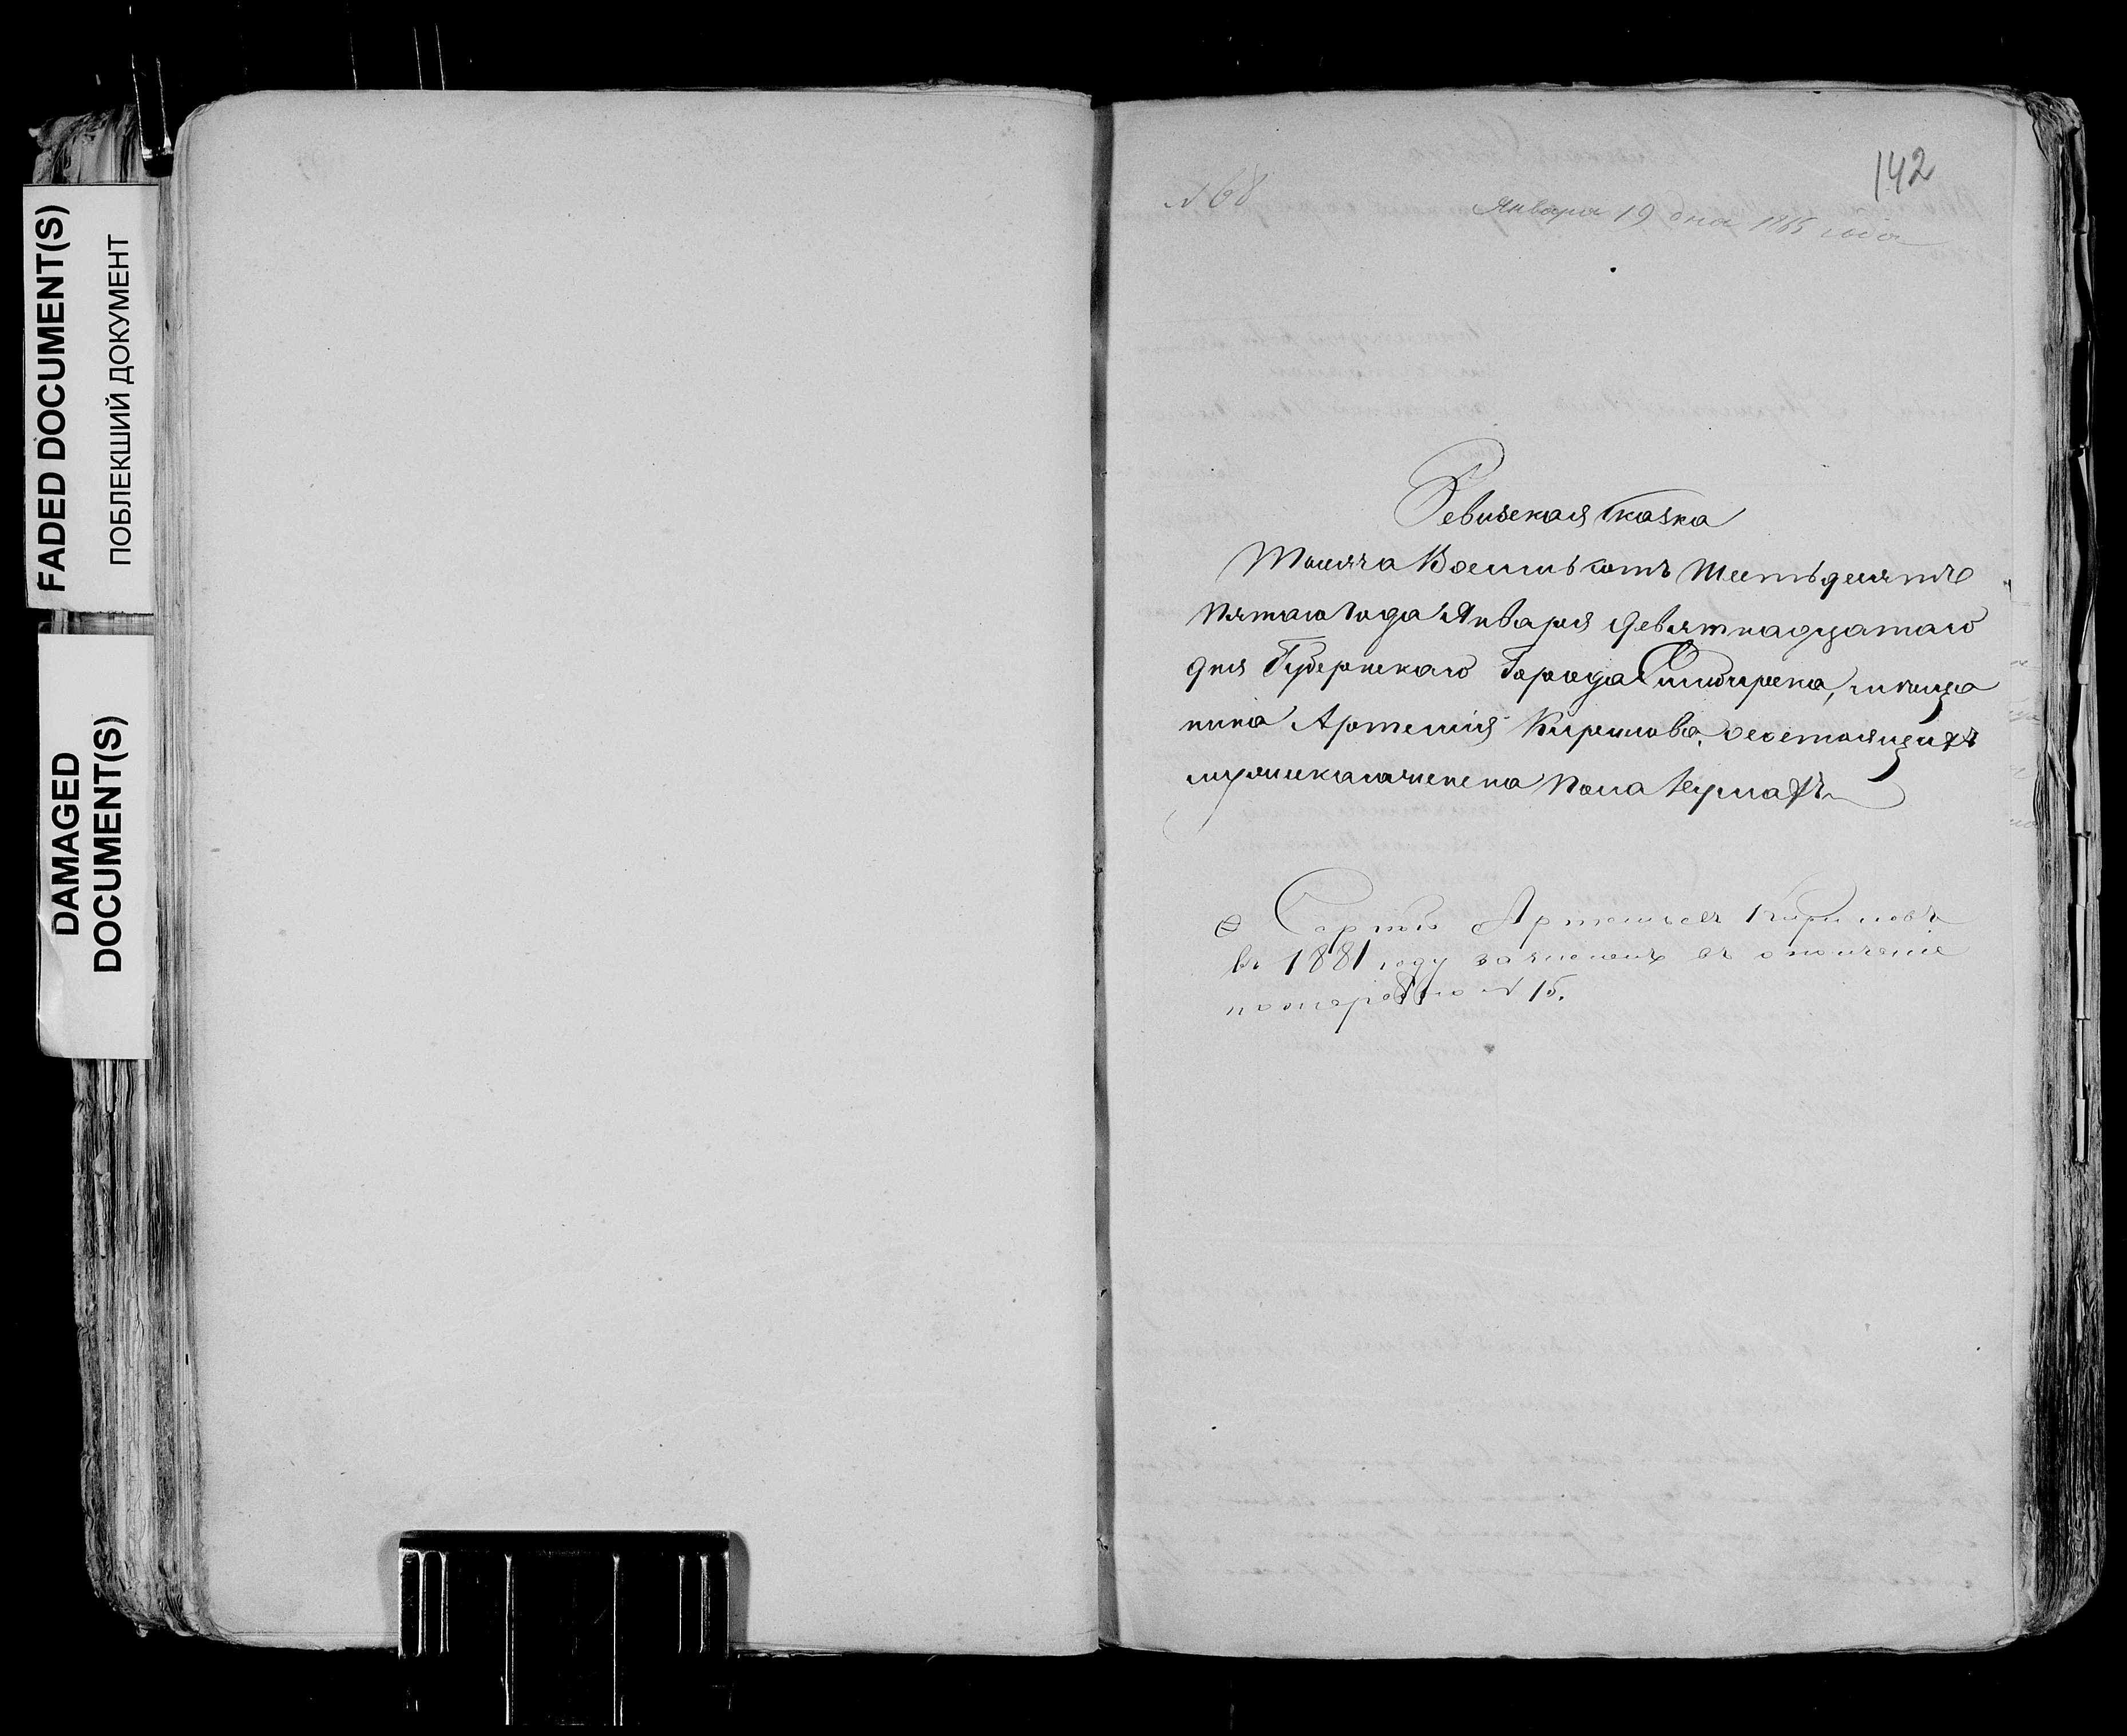 FADED DOCUMENT(S)
ПОБЛЕКШИЙ ДОКУМЕНТ
DAMAGED
DOCUMENT(S)
142
№ 68
Января 19 дня 1865 года
Ревизская сказка
Тысяча Восемьсотъ Шестьдесятъ
Пятаго Года Января девятнадцатаго
дня Губернскаго Города Симбирска, мѣща
нина Артемия Кирилова, о состоящихъ
мужеска и женска пола душахъ
Сергей Артемьевъ Кириловъ
въ 1881 году зачисленъ въ ополченіе
по жеребью № 15.